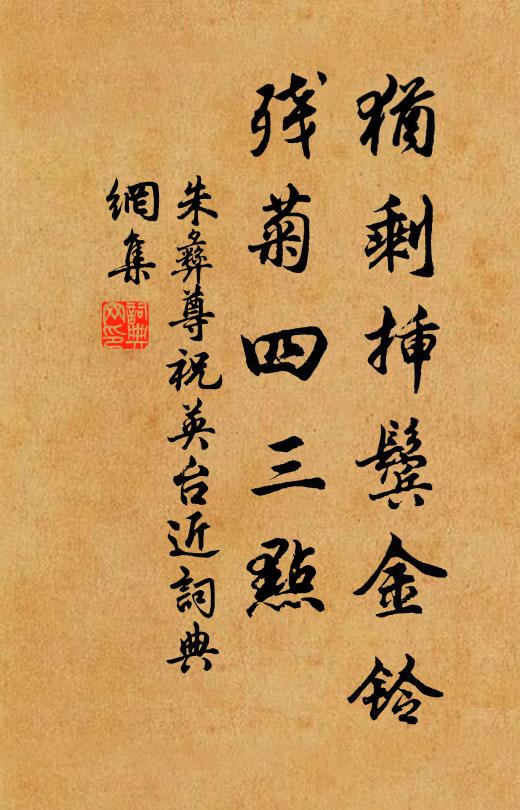 猶剩揷鬢金鈴
残菊四三點
朱彝尊祝英台近詞典
網集
詞典
文印